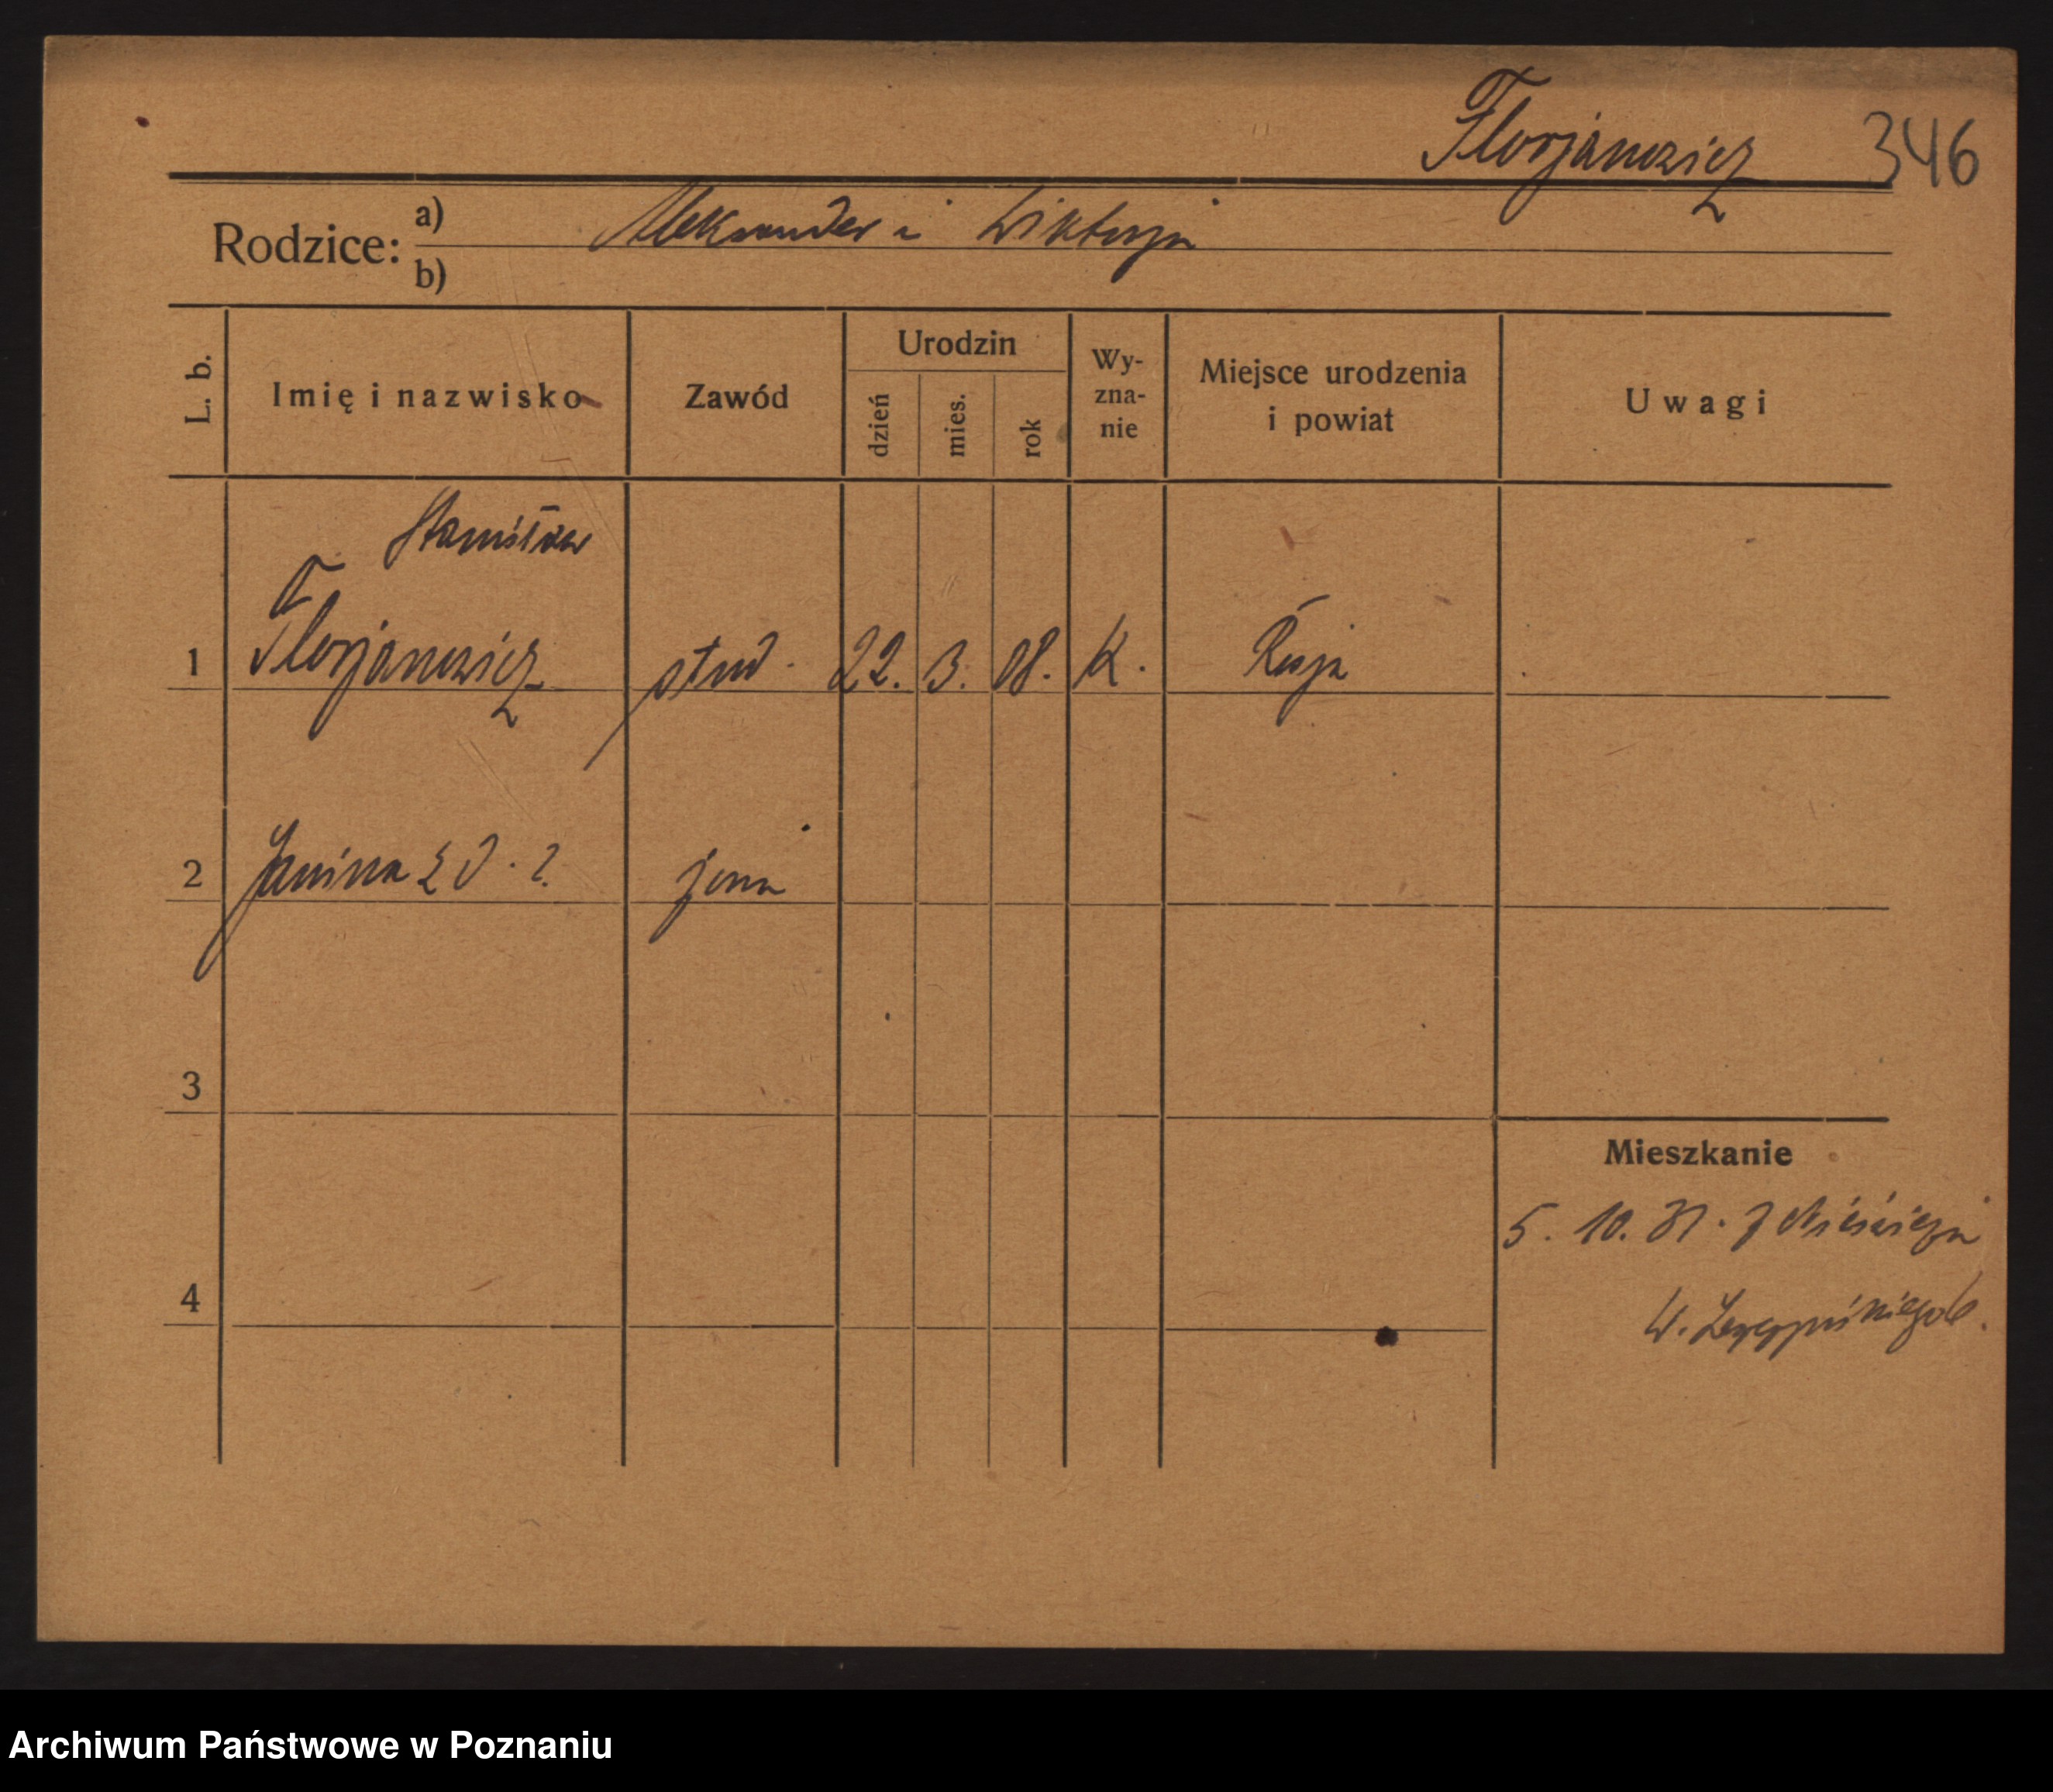 Florjanowicz 346
Rodzice: a) Aleksander i Wiktorja
b)
L. b. Imię i nazwisko Zawód Urodzin dzień mies. rok Wy-zna-nie Miejsce urodzenia i powiat Uwagi
Stanisław
1 Florjanowicz stud. 22. 3. 08. K. Rosja
2 Janina żona
3
Mieszkanie
5. 10. 31.
4
Archiwum Państwowe w Poznaniu